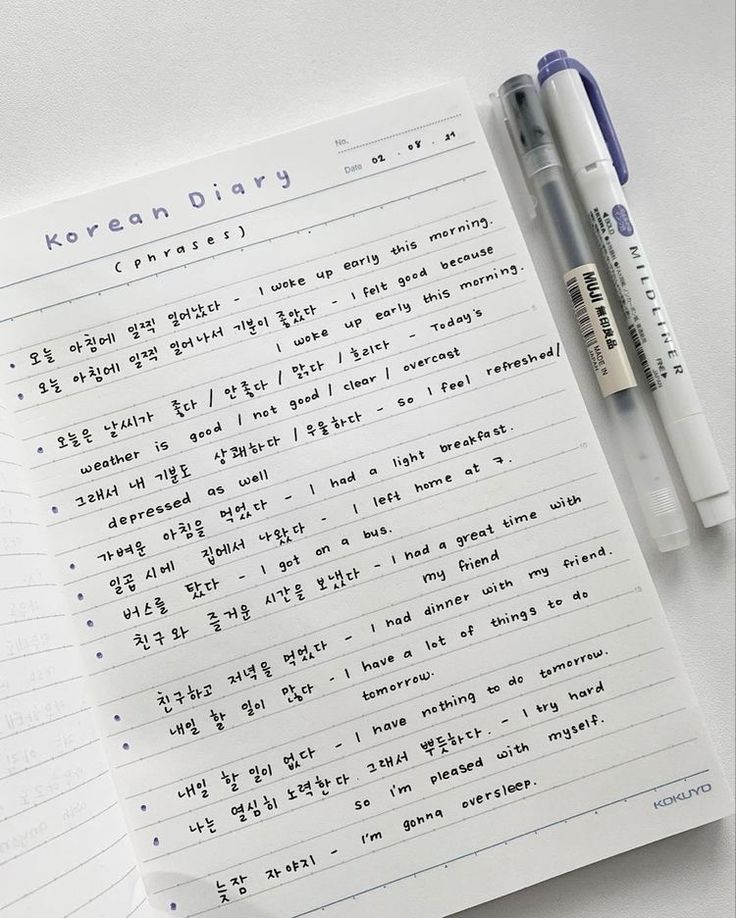 No.
Date 02 . 08 . 21
Korean Diary
(phrases)
오늘 아침에 일찍 일어났다 - I woke up early this morning.
오늘 아침에 일찍 일어나서 기분이 좋았다 - I felt good because
I woke up early this morning.
오늘은 날씨가 좋다 / 안좋다 / 맑다 / 흐리다 - Today's
weather is good / not good / clear / overcast
그래서 내 기분도 상쾌하다 / 우울하다 - So I feel refreshed/
depressed as well
가벼운 아침을 먹었다 - I had a light breakfast.
일곱 시에 집에서 나왔다 - I left home at 7.
버스를 탔다 - I got on a bus.
친구와 즐거운 시간을 보냈다 - I had a great time with
my friend
친구하고 저녁을 먹었다 - I had dinner with my friend.
내일 할 일이 많다 - I have a lot of things to do
tomorrow.
내일 할 일이 없다 - I have nothing to do tomorrow.
나는 열심히 노력한다. 그래서 뿌듯하다. - I try hard
so I'm pleased with myself.
늦잠 자야지 - I'm gonna oversleep.
KOKUYO
MUJI 無印良品
MADE IN JAPAN
MILDLINER
BOLD
ZEBRA
FINE
5
10
15